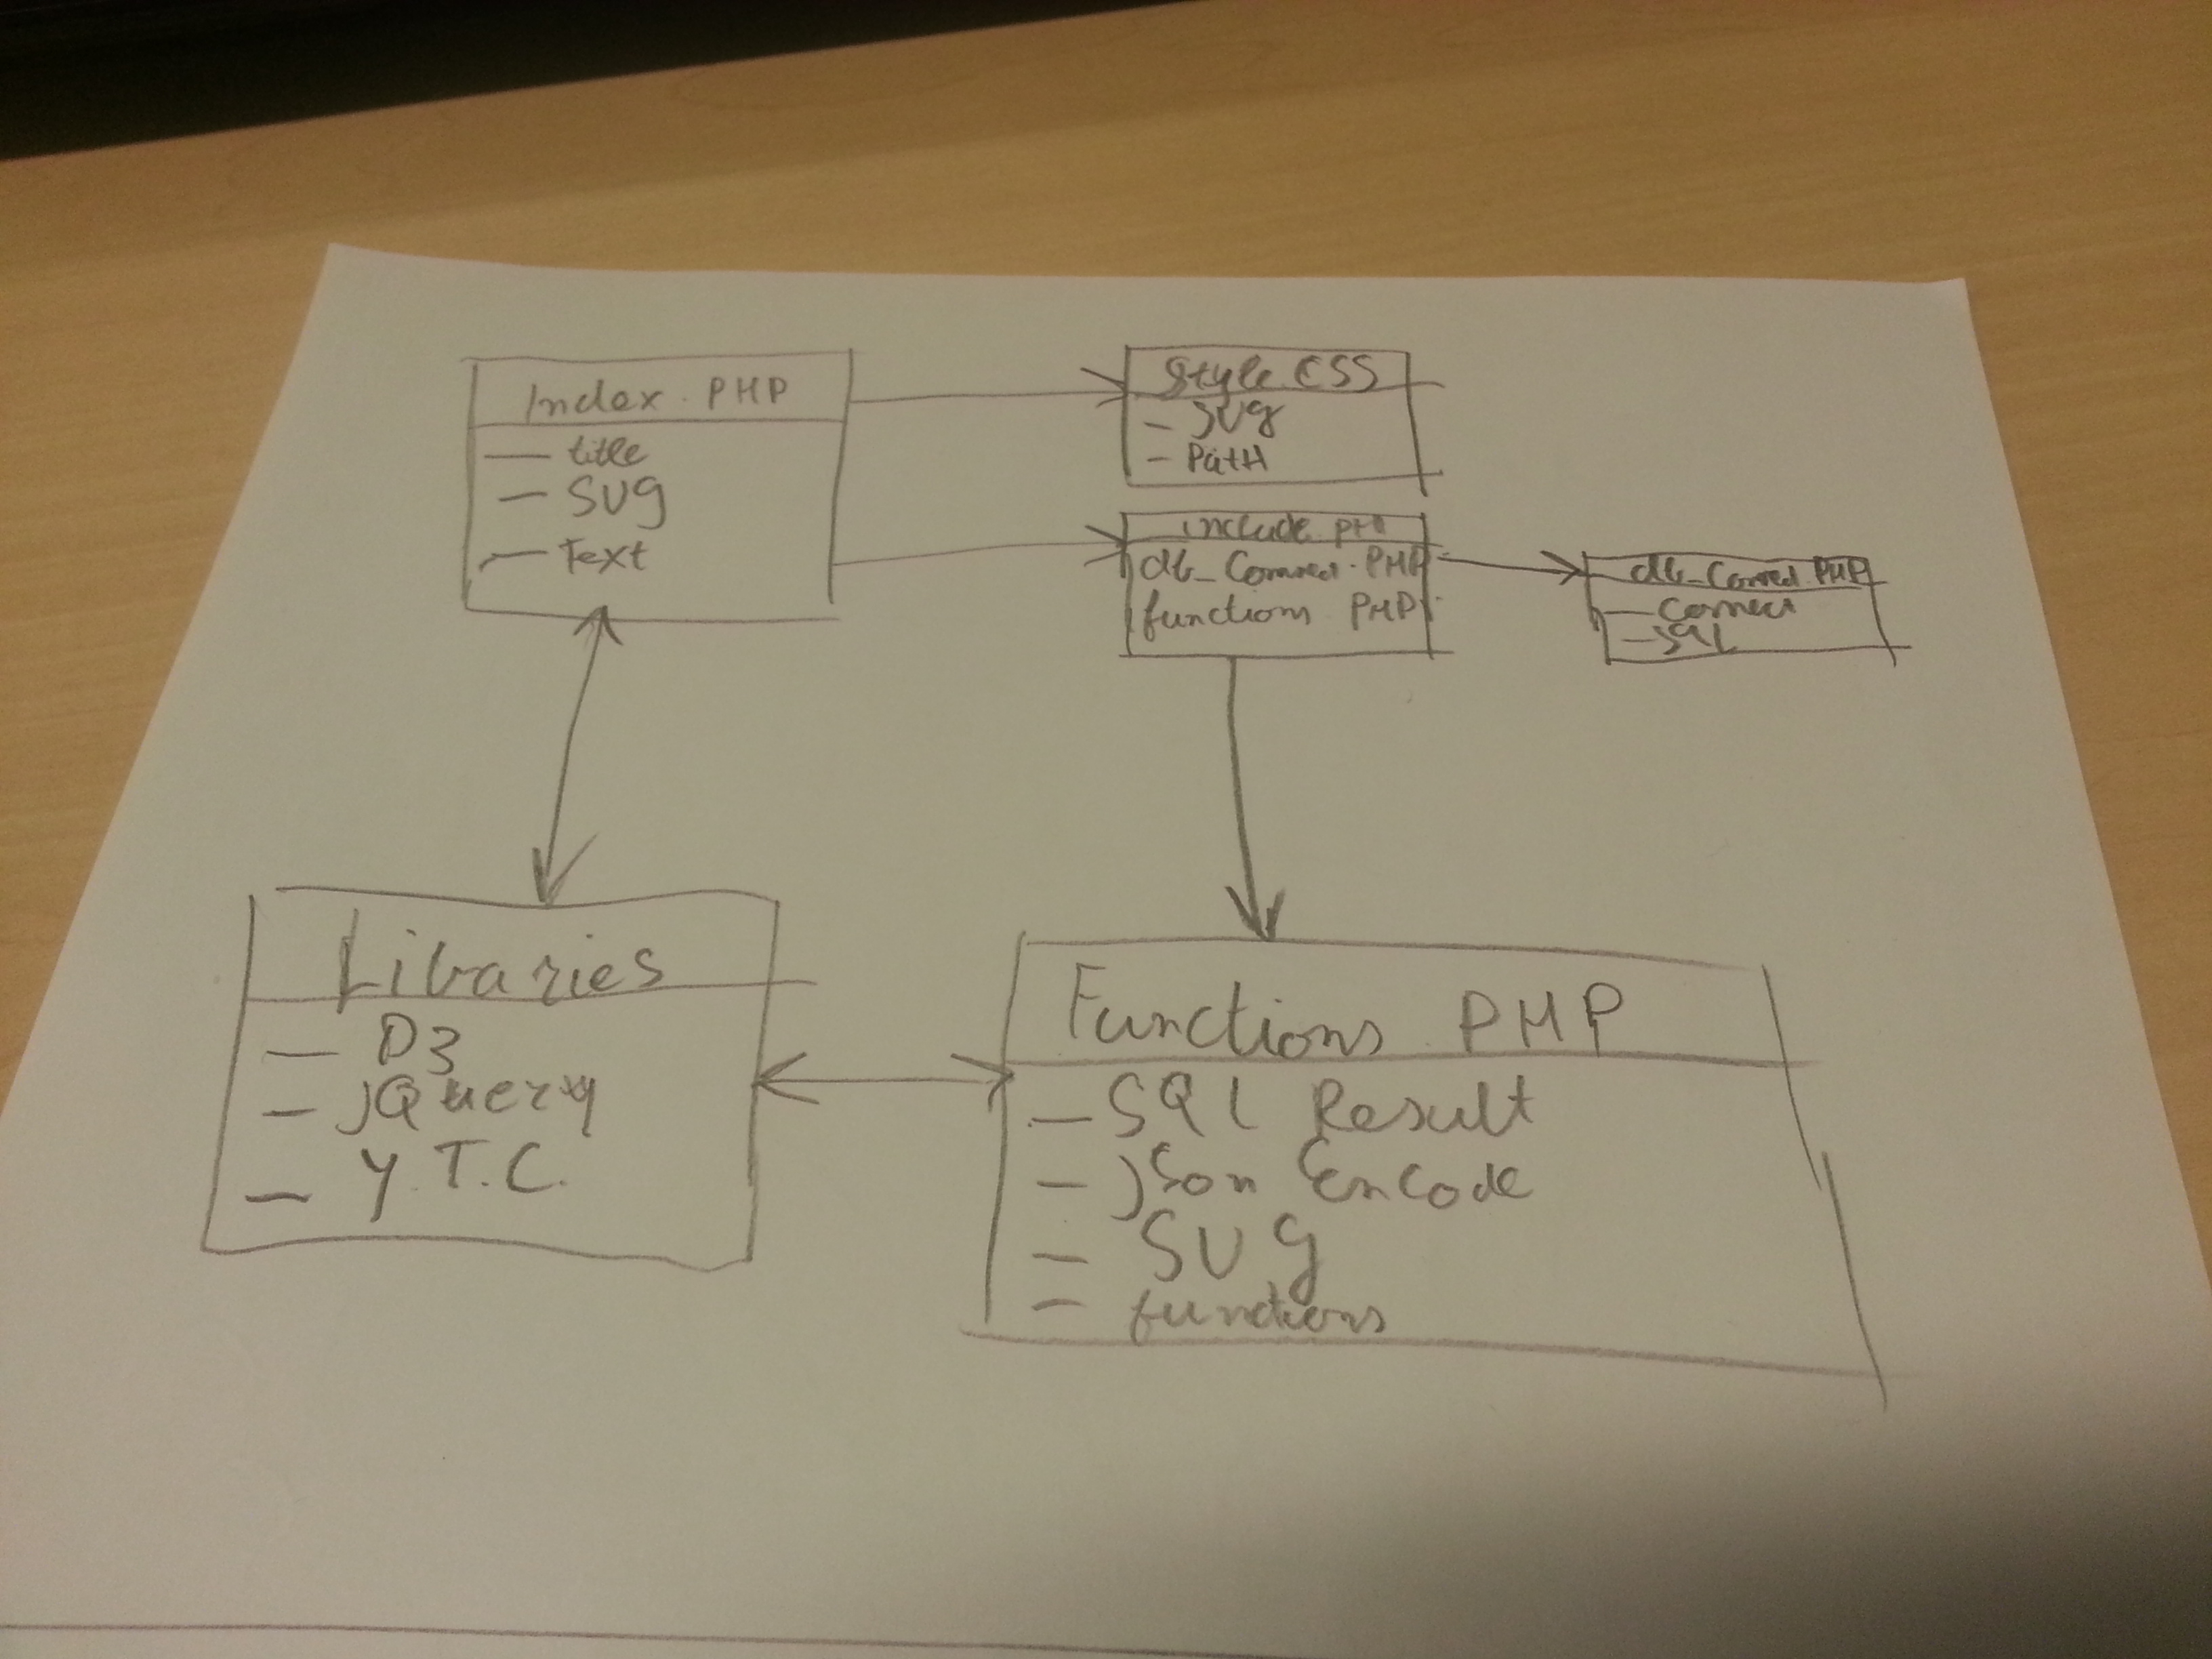 Index.PHP
— title
— SVG
— Text
Style.CSS
— SVG
— PatH
include.PH
db_Connect.PHP
functions PHP
db_Connect.PHP
— Connect
— SQL
Libaries
— D3
— jQuery
— Y.T.C.
Functions.PHP
— SQL Result
— jSon Encode
— SVG
— functions